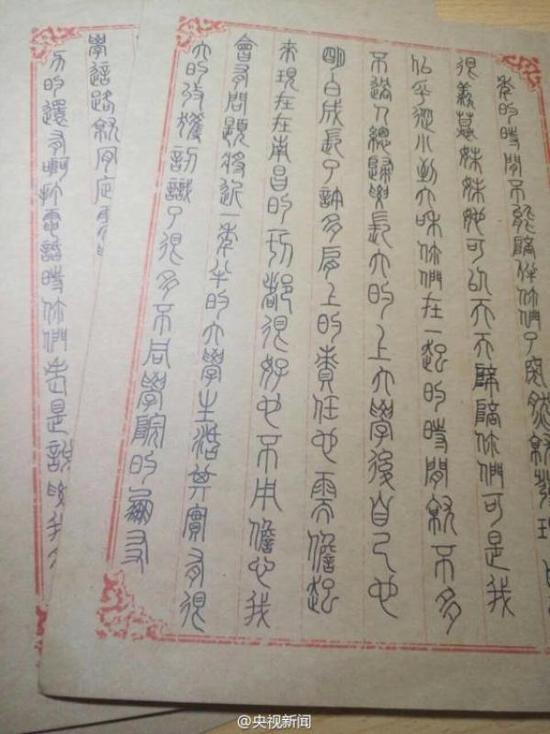 年的時間不能陪伴你們了突然就發現
很羨慕妹妹她可以天天陪你們可是我
似乎從小到大和你們在一起的時間就不多
不過人總歸要長大的上大學後自己也
明白成長了許多肩上的責任也需擔起
來現在在南昌的一切都很好也不用擔心我
會有問題將近一年半的大學生活其實有很
大的收獲認識了很多不同學院的朋友
學這路就
方的還有啊打電話時你們老是說我
@央视新闻